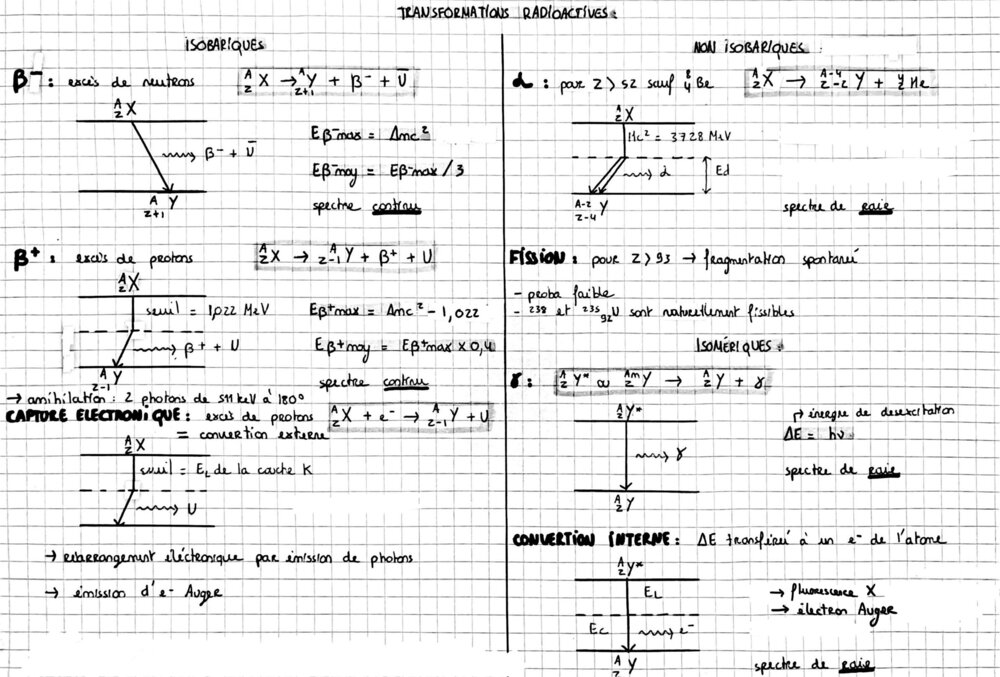 TRANSFORMATIONS RADIOACTIVES :
ISOBARIQUES
β⁻ : excès de neutrons ᴬ_Z X → ᴬ_Z+1 Y + β⁻ + ν̄
ᴬ_Z X
Eβ⁻max = Δmc²
β⁻ + ν̄
Eβ⁻moy = Eβ⁻max / 3
ᴬ_Z+1 Y
spectre continu
β⁺ : excès de protons ᴬ_Z X → ᴬ_Z-1 Y + β⁺ + ν
ᴬ_Z X
seuil = 1,022 MeV
Eβ⁺max = Δmc² - 1,022
β⁺ + ν
Eβ⁺moy = Eβ⁺max x 0,4
ᴬ_Z-1 Y
spectre continu
→ annihilation : 2 photons de 511 keV à 180°
CAPTURE ELECTRONIQUE : excès de protons ᴬ_Z X + e⁻ → ᴬ_Z-1 Y + ν
= convertion externe
ᴬ_Z X
seuil = E_L de la couche K
ν
→ réarrangement éléctronique par émission de photons
→ émission d'e- Auger
NON ISOBARIQUES :
α : pour Z > 52 sauf ⁸_4 Be ᴬ_Z X → ᴬ⁻⁴_Z-2 Y + ⁴_2 He
ᴬ_Z X
Mc² = 3728 MeV
α
Ed
ᴬ⁻²_Z-4 Y
spectre de raie
FISSION : pour Z > 93 → fragmentation spontané
- proba faible
- ²³⁸ et ²³⁵_92 U sont naturellement fissibles
ISOMÉRIQUES :
γ : ᴬ_Z Y* ou ᴬᵐ_Z Y → ᴬ_Z Y + γ
ᴬ_Z Y*
énergie de desexcitation
ΔE = hν
γ
spectre de raie
ᴬ_Z Y
CONVERTION INTERNE : ΔE transféré à un e- de l'atome
ᴬ_Z Y*
E_L
→ fluorescence X
→ électron Auger
Ec
e⁻
ᴬ_Z Y
spectre de raie